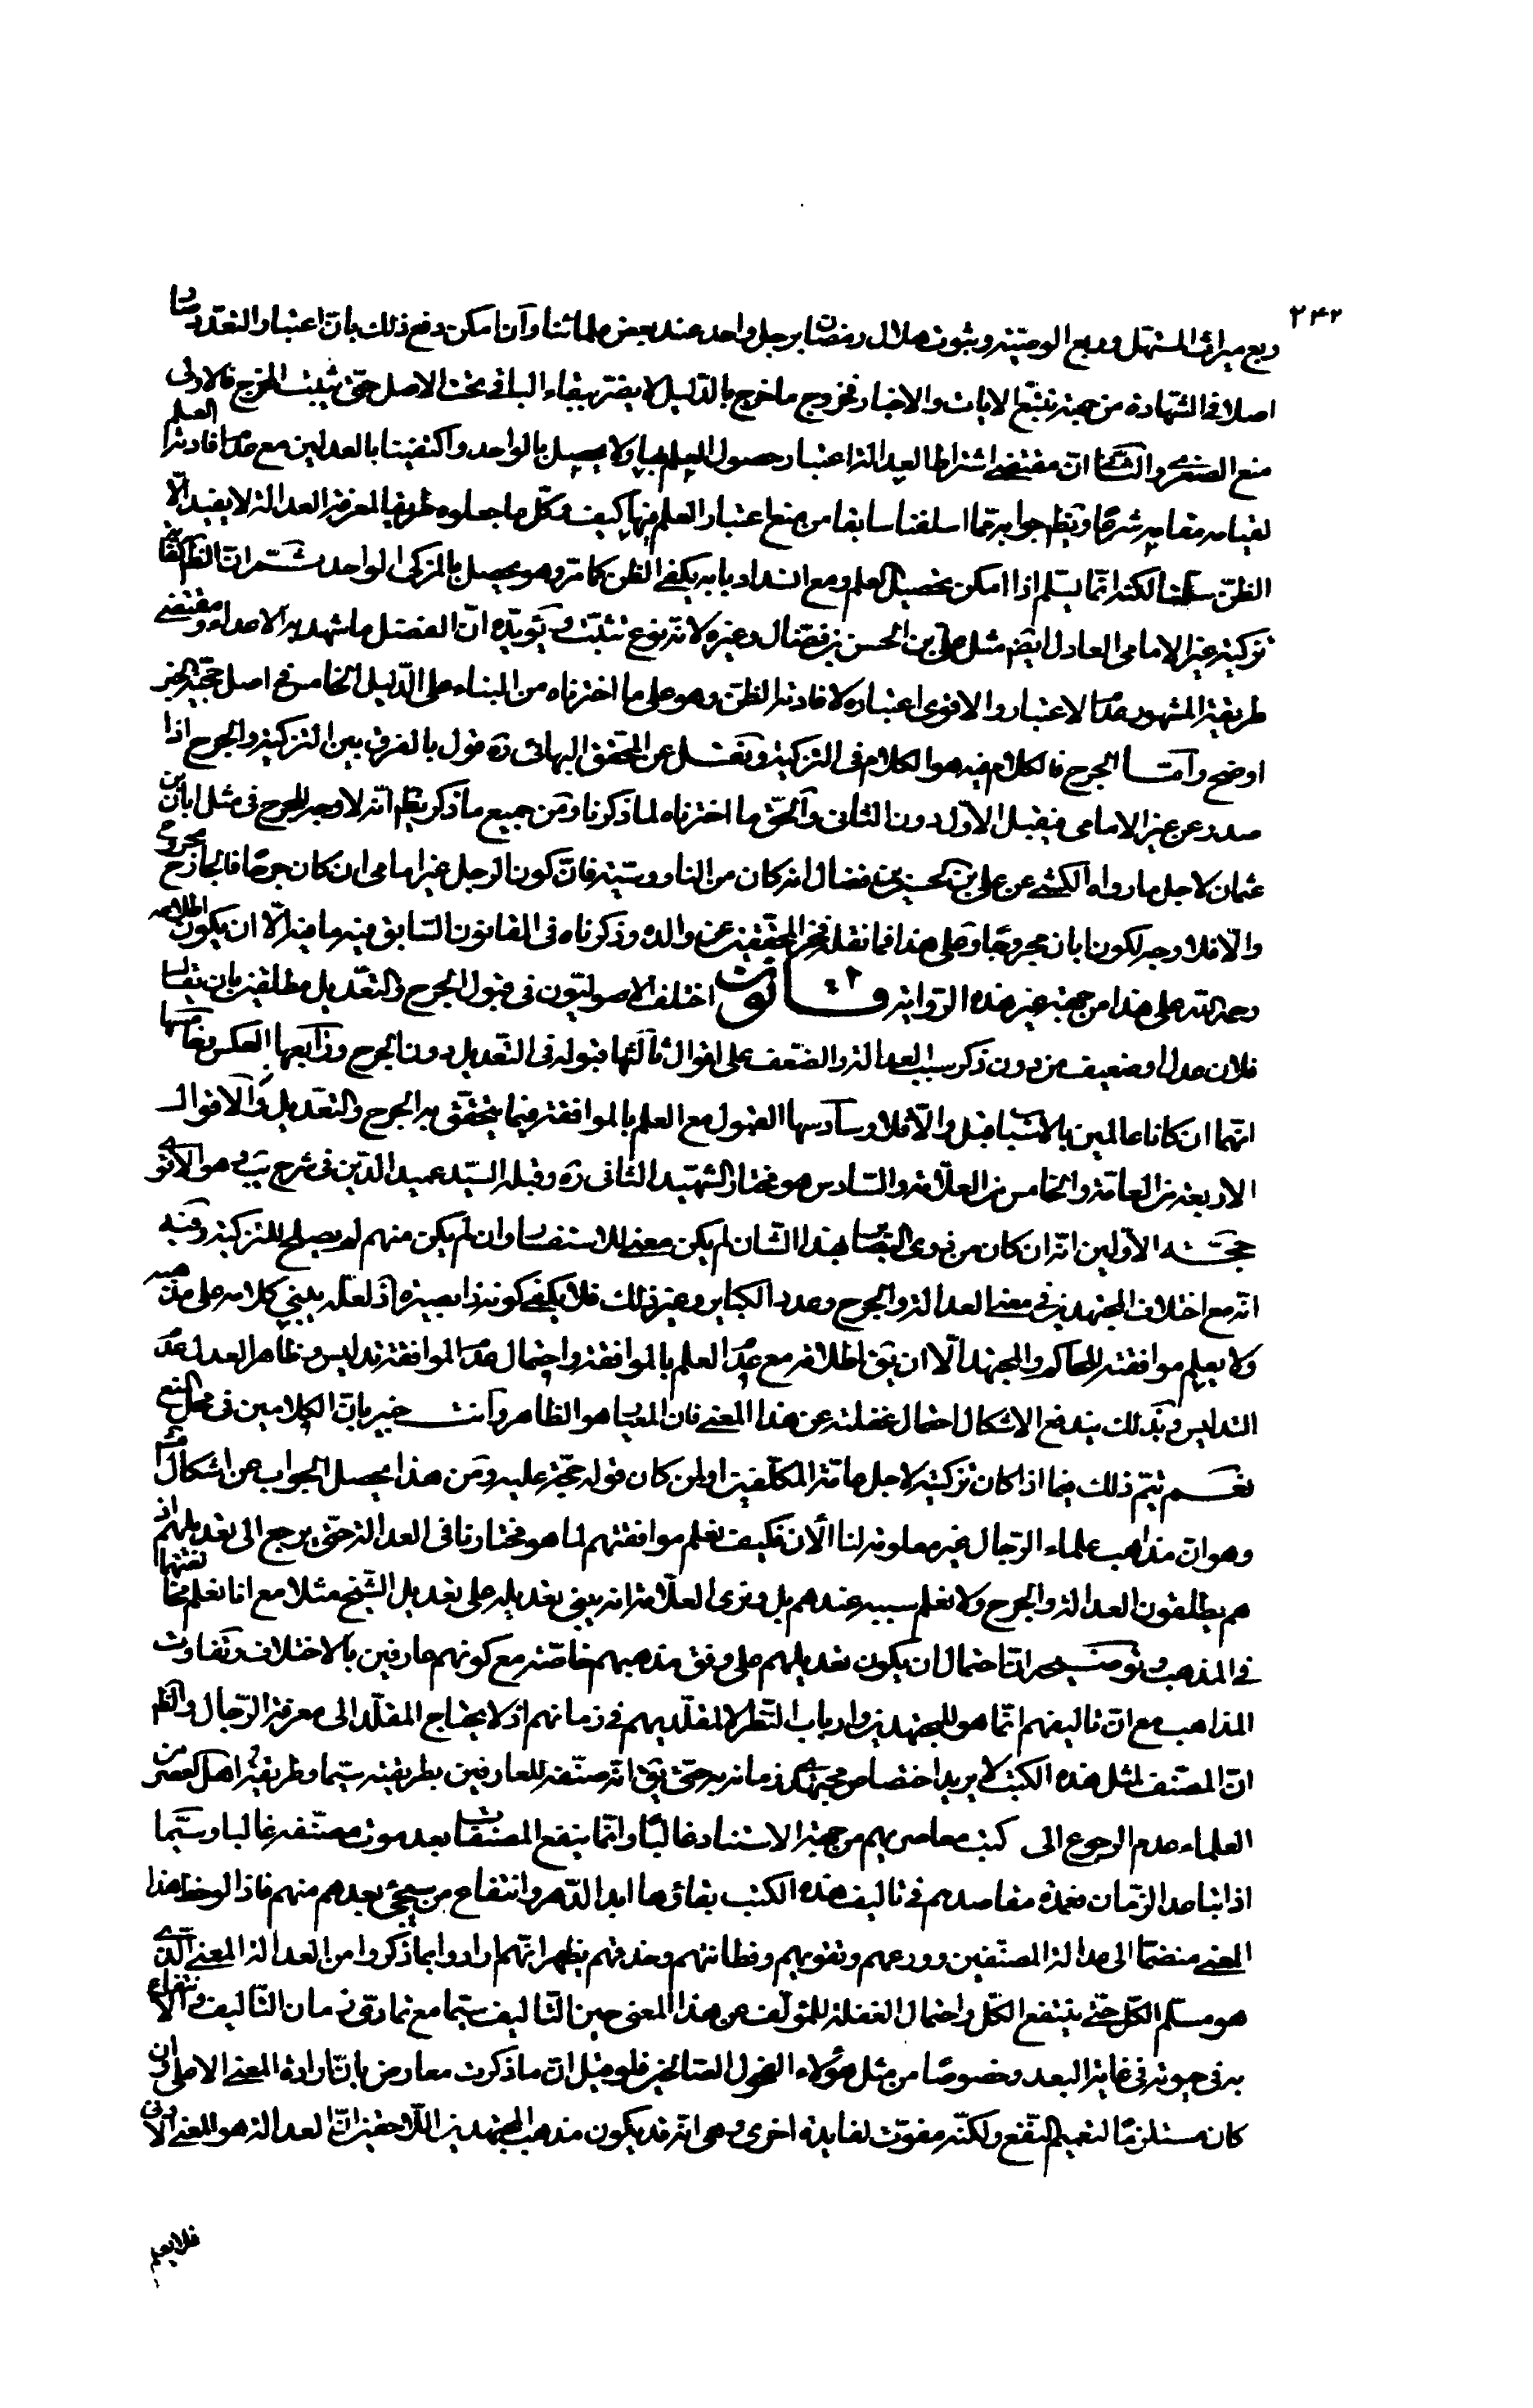 ۲۴۲
ربع ميراث المستهل وربع الوصية وثبوت هلال رمضان برجل واحد عند بعض علمائنا وان امكن دفع ذلك بان اعتبار التعدد صار
اصلا فى الشهادة من جهة تتبع الايات والاخبار فخروج ما خرج بالدليل لا يضر ببقاء الباقى تحت الاصل حتى يثبت المخرج فالاولى
منع الصغرى والثانى ان مقتضى اشتراط العدالة اعتبار حصول العلم بها ولا يحصل بالواحد واكتفينا بالعدلين مع عدم افادته العلم
لقيامه مقامه شرعا ويظهر جوابه مما اسلفنا سابقا من منع اعتبار العلم فيها كيف وكل ما جعلوه طريقا لمعرفة العدالة لا يفيد الا
الظن سلمنا لكنه انما يسلم اذا امكن تحصيل العلم ومع انسداد بابه يكفى الظن كما مر وهو يحصل بالمزكى الواحد ثم ان الظ كفاية
تزكية غير الامامى العادل ايض مثل على بن الحسن بن فضال وغيره لانه نوع تثبت ويؤيده ان الفضل ما شهد به الاعداء ومقتضى
طريقة المشهور عدم الاعتبار والاقوى اعتباره لافادته الظن وهو على ما اخترناه من البناء على الدليل الخامس فى اصل حجية الخبر
اوضح واما الجرح فالكلام فيه هو الكلام فى التزكية ونقل عن المحقق البهائى ره قول بالفرق بين التزكية والجرح اذا
صدر عن غير الامامى فيقبل الاول دون الثانى والحق ما اخترناه لما ذكرنا ومن جميع ما ذكر يظهر انه لا وجه للجرح فى مثل ابان بن
عثمان لاجل ما رواه الكشى عن على بن الحسن بن فضال انه كان من الناووسية فان كون الرجل غير امامى ان كان جرحا فالجارح مجروح
والا فلا وجه لكون ابان مجروحا وعلى هذا فما نقله فخر المحققين عن والده وذكرناه فى القانون السابق فيه ما فيه الا ان يكون اطلاعه
رحمه الله على هذا من جهة غير هذه الرواية قانون اختلف الاصوليون فى قبول الجرح والتعديل مطلقين بان يقال
فلان عدل او ضعيف من دون ذكر سبب العدالة والضعف على اقوال ثالثها قبوله فى التعديل دون الجرح ورابعها العكس وخامسها
انهما ان كانا عالمين بالاسباب قبل والا فلا وسادسها القبول مع العلم بالموافقة فيما يتحقق به الجرح والتعديل والاقوال
الاربعة من العامة والخامس من العلامة والسادس هو مختار الشهيد الثانى ره وقبله السيد عميد الدين فى شرح يب وهو الاقوى
حجة الاولين انه ان كان من ذوى البصاير بهذا الشان لم يكن معنى للاستفسار وان لم يكن منهم لم يصلح للتزكية وفيه
انه مع اختلاف المجتهدين فى معنى العدالة والجرح وعدد الكباير وغير ذلك فلا يكفى كونه ذا بصيرة اذ لعله يبنى كلامه على مذهبه
ولا يعلم موافقته للحاكم والمجتهد الا ان يق اطلاقه مع عدم العلم بالموافقة واحتمال عدم الموافقة تدليس وظاهر العدل عدم
التدليس وبذلك يندفع الاشكال احتمال غفلته عن هذا المعنى فان المعيار هو الظاهر وانت خبير بان الكلامين فى محل المنع
نعم يتم ذلك فيما اذا كان تزكيته لاجل عامة المكلفين او لمن كان قوله حجة عليه ومن هذا يحصل الجواب عن اشكال مشهور
وهو ان مذاهب علماء الرجال غير معلومة لنا الان فكيف نعلم موافقتهم لما هو مختارنا فى العدالة حتى يرجع الى تعديلهم اذ
هم يطلقون العدالة والجرح ولا نعلم سببه عندهم بل ونرى العلامة انه يبنى تعديله على تعديل الشيخ مثلا مع انا نعلم مخالفتهما
فى المذهب وتوضيحه ان احتمال ان يكون تعديلهم على وفق مذهبهم خاصة مع كونهم عارفين بالاختلاف وتفاوت
المذاهب مع ان تاليفهم انما هو للمجتهدين وارباب النظر لا لمقلديهم فى زمانهم اذ لا يحتاج المقلد الى معرفة الرجال والظ
ان المصنف لمثل هذه الكتب لا يريد اختصاص مجتهدى زمانه به حتى يق انه صنفه للعارفين بطريقته سيما وطريقة اهل العصر من
العلماء عدم الرجوع الى كتب معاصريهم من جهة الاستناد غالبا وانما ينفع المصنفات بعد موت مصنفه غالبا وسيما
اذا تباعد الزمان فعمدة مقاصدهم فى تاليف هذه الكتب بقاؤها ابد الدهر وانتفاع من سيجئ بعدهم منهم فاذا لوحظ هذا
المعنى منضما الى عدالة المصنفين وورعهم وتقويهم وفطانتهم وحذقهم يظهر انهم ارادوا بما ذكروا من العدالة المعنى الذى
هو مسلم الكل حتى ينتفع الكل واحتمال الغفلة للمؤلف عن هذا المعنى حين التاليف سيما مع تمادى زمان التاليف والانتفاع
به فى حيوته فى غاية البعد وخصوصا من مثل هؤلاء الفحول الصالحين فلو قيل ان ما ذكرت معارض بان ارادة المعنى الاعلى وان
كان مستلزما لتعميم النفع ولكنه مفوت لفايدة اخرى وهى انه قد يكون مذهب المجتهدين اللاحقين ان العدالة هو المعنى الادنى
فلا يعلم